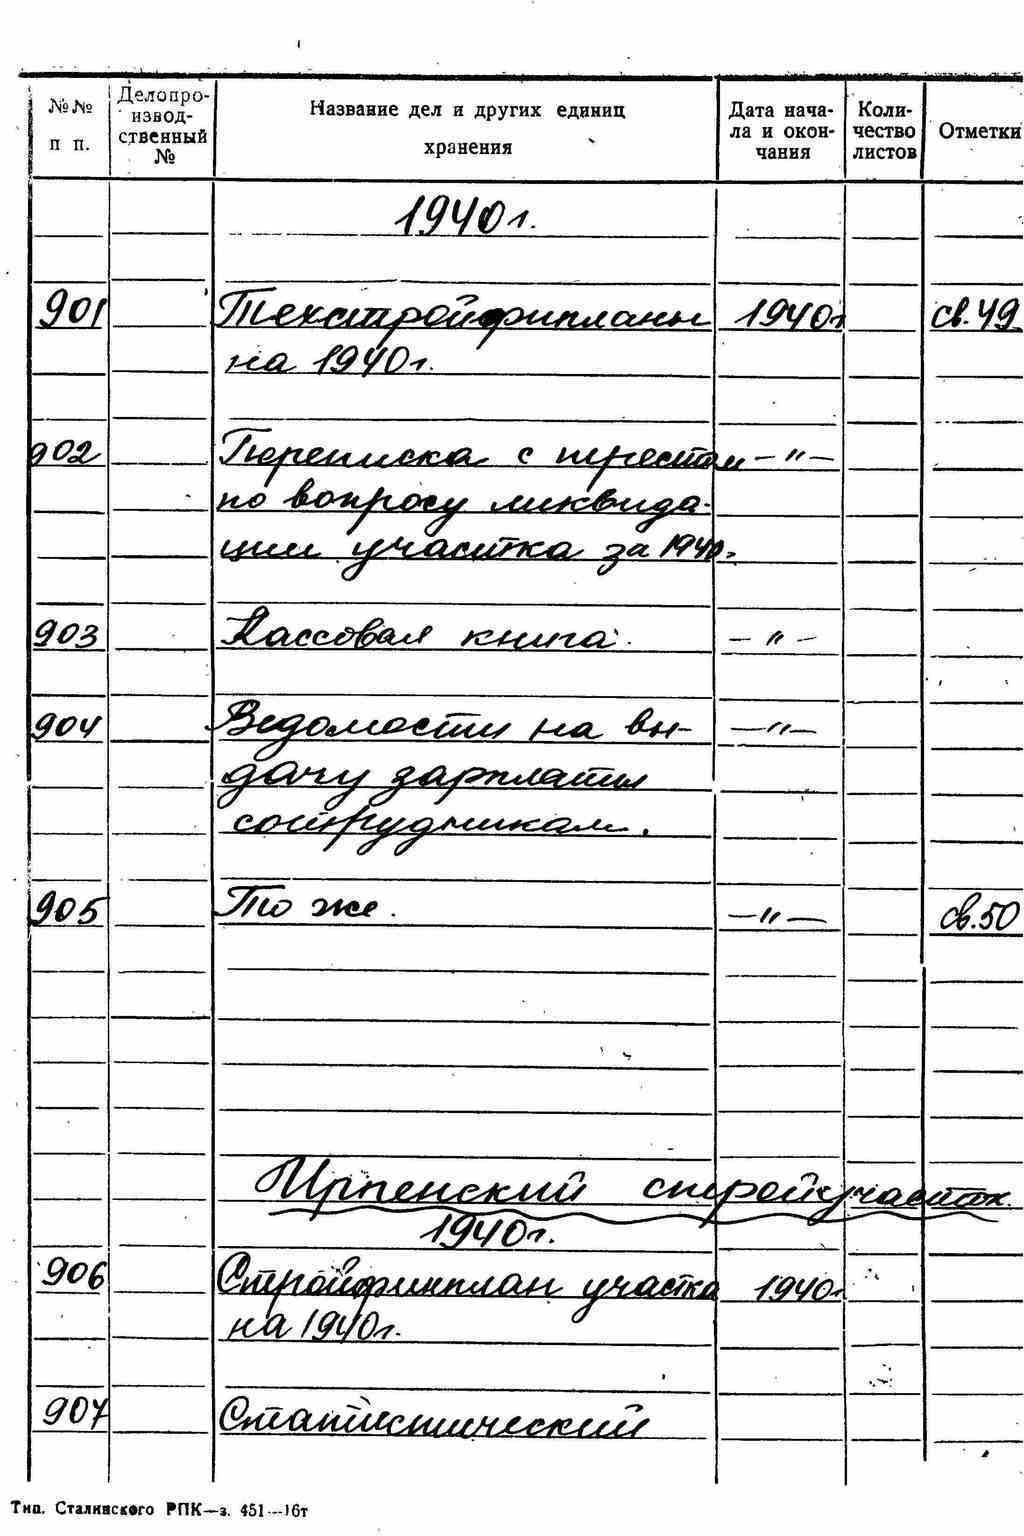 №№ п п. Делопро-извод-ственный № Название дел и других единиц хранения Дата нача-ла и окон-чания Коли-чество листов Отметки
1940г.
901 Техстройфинпланы 1940г св.49
на 1940г.
902 Переписка с трестом —"—
по вопросу ликвида-
ции участка за 1940г.
903 Кассовая книга. —"—
904 Ведомости на вы- —"—
дачу зарплаты
сотрудникам.
905 То же. —"— св.50
Ирпенский стройучасток
1940г.
906 Стройфинплан участка 1940г
на 1940г.
907 Статистический
Тип. Сталинского РПК—з. 451—16т